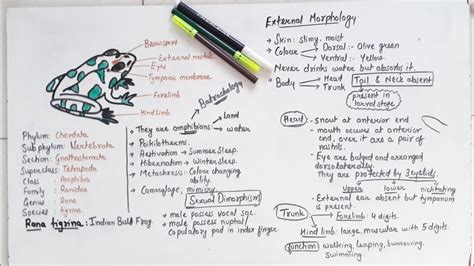 Brownspot
External nostril
Eyes
Tympanic membrane
Forelimb
Hind limb
Phylum: Chordata
Sub phylum: Vertebrata
Section: Gnathostomata
Superclass: Tetrapoda
Class: Amphibia
Family: Ranidae
Genus: Rana
Species: tigrina
Rana tigrina: Indian Bull Frog.
Batrachology
They are amphibians
land
water
Poikilotherms.
Aestivation → Summer sleep.
Hibernation → Winter sleep.
Metachrosis: Colour changing
ability.
Camouflage; mimicry.
Sexual Dimorphism
male possess vocal sac.
male possess nuptial/
Copulatory pad in index finger
External Morphology
Skin: slimy, moist
Colour
Dorsal: Olive green
Ventral: Yellow.
Never drinks water but absorbs it.
Body
Head
Trunk
Tail & Neck absent
present in
larval stage
Head
- Snout at anterior end
- mouth occurs at anterior
end, over it are a pair of
nostrils.
- Eye are bulged and arranged
dorsolaterally.
They are protected by 3 eyelids.
Upper
lower
nictitating
- External ear absent but tympanum
is present.
Trunk
Forelimb: 4 digits.
Hind limb: large, muscular with 5 digits.
function: walking, leaping, burrowing,
Swimming.